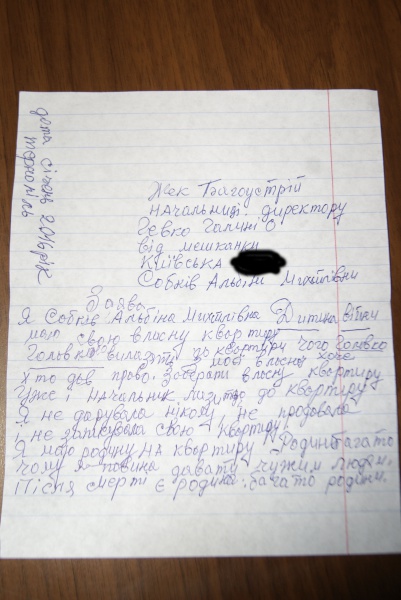 дата січень 2016 рік
тернопіль
Жек Багоустрій
начальниці директору
Гевко Галині О.
від мешканки
Київська
Собків Альбіни Михайлівни
Заява
Я Собків Альбіна Михайлівна Дитина війни
маю свою власну квартиру
до квартири чого
хто дав право. Забирати власну квартиру
Уже і начальник лизить до квартири
Я не дарувала нікому не продавала
і не записувала свою квартиру,
Я маю родину на квартиру Родини багато
чому я повина давати чужим людям.
Після смерті є родина. багато родини.